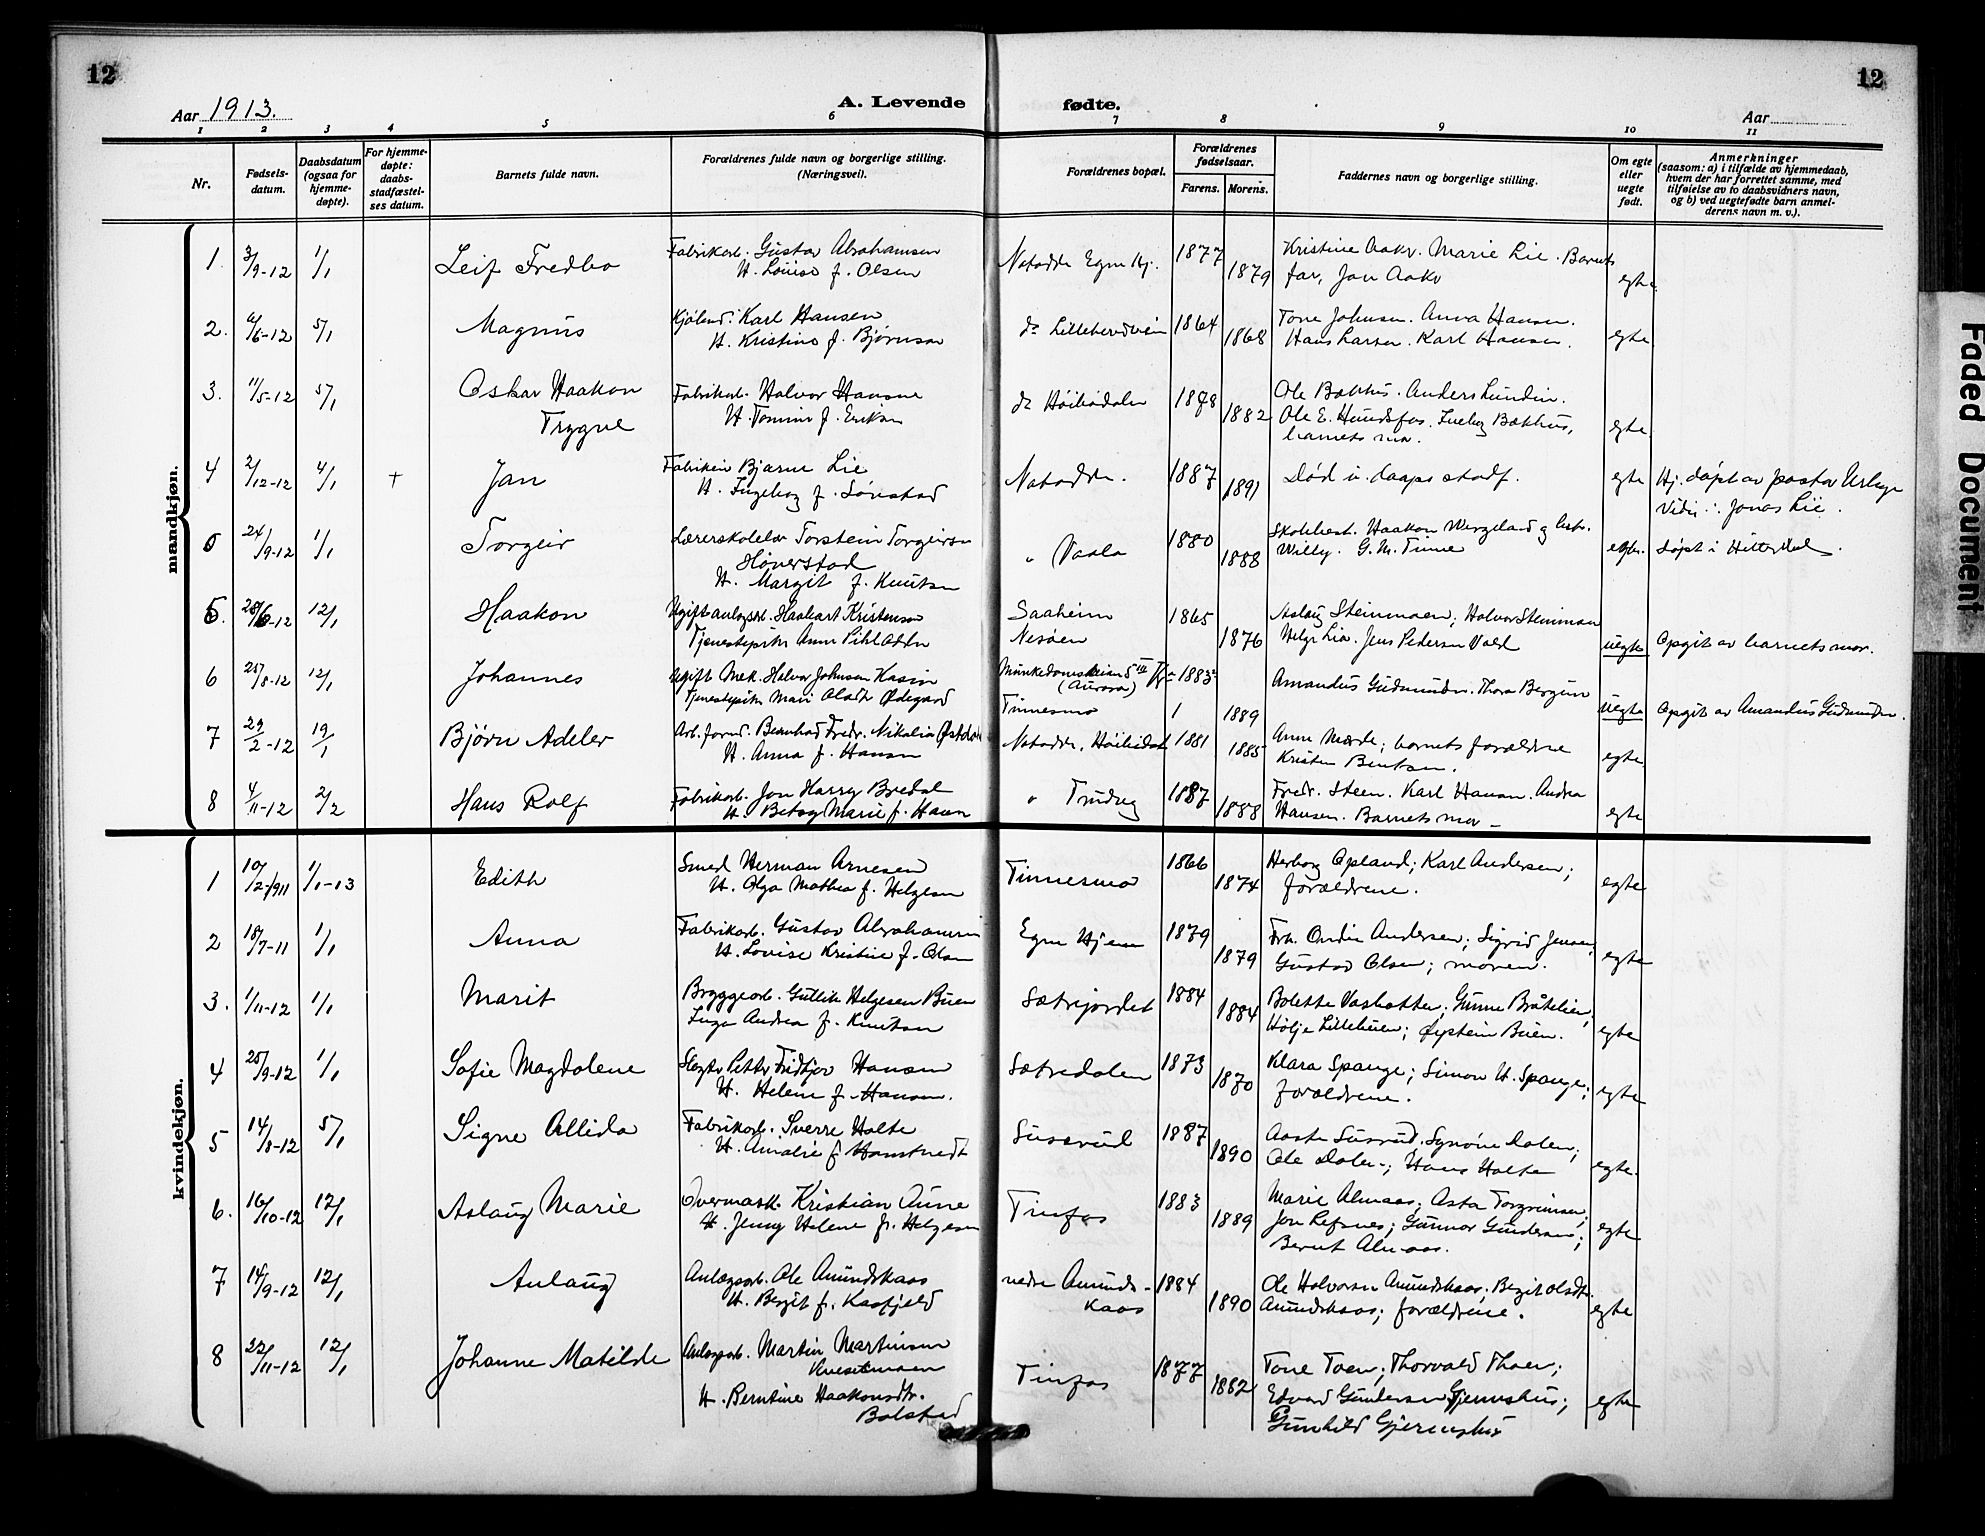 12
12
Aar 1913.
A. Levende fødte.
Aar
1 2 3 4 5 6 7 8 9 10 11
Nr.
Fødsels-
datum.
Daabsdatum
(ogsaa for
hjemme-
døpte).
For hjemme-
døpte:
daabs-
stadfæstel-
ses datum.
Barnets fulde navn.
Forældrenes fulde navn og borgerlige stilling.
(Næringsvei).
Forældrenes bopæl.
Forældrenes
fødselsaar.
Farens. Morens.
Faddernes navn og borgerlige stilling.
Om egte
eller
uegte
født.
Anmerkninger
(saasom: a) i tilfælde av hjemmedaab,
hvem der har forrettet samme, med
tilføielse av to daabsvidners navn,
og b) ved uegtefødte barn anmel-
derens navn m. v.).
mandkjøn.
1. 3/9-12 1/1 Leif Fredbo
Fabrikarb. Gustav Abrahamsen
H. Louise f. Olsen
Notodde Egne Hj. 1877 1879
Kristine Aakr. Marie Lie. Barnets
far, Jon Aakr
egte
2. 4/6-12 5/1 Magnus
Karl Hansen
H. Kristine f. Bjørnson
do 1864 1868
Tone Johnsen. Anna Hansen.
Hans Larsen. Karl Hansen.
egte
3. 11/5-12 5/1 Oskar Haakon
Trygve
Fabrikarb. Halvor Hansen
H. f. Eriksen
do 1878 1882
Ole Bakhus. Anders Lundin.
Ole E. Hundsfos. Bakhus,
barnets mor.
egte
4 2/12-12 4/1 + Jan
Bjarne Lie
H. Ingeborg f. Sønstad
Notodde. 1887 1891
Død u. daaps stadf.
egte
Hj. døpt av pastor
Vidn: Jonas Lie.
5 24/9-12 1/1 Torgeir
Lærerskolelær Torstein Torgeirson
Høverstad
H. Margit f. Knutsen
" Vaala 1880 1888
Haakon Wergeland og
Willy. G. M. Tinne
egte. døpt i Hitterdal.
6. 28/6-12 12/1 Haakon
Ugift anlægsarb. Kristensen
Tjenestepike
Saaheim
Nesøen
1865 1876
Aslaug Steinmoen, Halvor Steinmoen
Helge Lia. Jens Pedersen Vold
uegte Opgit av barnets mor.
6 25/8-12 12/1 Johannes
Ugift Mek. Halvor Johnsen Kasin
Tjenestepike Mari Olsdt. Ødegaard
(Aurora)
Tinnesmo
1883 1889
Amandus Gudmundsn. Thora Bergun
uegte Opgit av Amandus Gudmundsn.
7 29/2-12 19/1 Bjørn Adeler
Arb. form. Bernhard Fredr. Nikolai Østdal
H. Anna f. Hansen
Notodde, 1881 1885
Anne Mærde; barnets forældre
Kristen Bentsen.
egte
8 4/11-12 2/2 Hans Rolf
Fabrikarb. Jon Harry Bredal
H. Betsy Marie f. Hansen
" 1887 1888
Fredr. Steen. Karl Hansen. Andrea
Hansen. Barnets mor -
egte
kvindekjøn.
1 10/2-1911 1/1-13 Edith
Smed Herman Arnesen
H. Olga Mathea f. Helgesen
Tinnesmo 1866 1874
Herborg Opland; Karl Andersen;
forældrene.
egte
2 18/7-11 1/1 Anna
Fabrikarb. Gustav Abrahamsen
H. Lovise Kristine f. Olsen
Egne Hjem 1879 1879
Frk. Ondin Andersen; Sigrid Jensen;
Gustav Olsen; moren.
egte
3. 1/11-12 1/1 Marit
Bryggearb. Gullik Helgesen Buen
Inga Andrea f. Knutsen
Sætrejordet 1884 1884
Bolette Vashotten; Gunne Bråtelien,
Hølje Lillebuen; Øystein Buen.
egte
4 25/9-12 1/1 Sofie Magdolene
Slagter Petter Fridtjov Hansen
H. Helene f. Hansen.
Sætredalen 1873 1870
Klara Spange; Simon H. Spange;
forældrene.
egte
5 14/8-12 5/1 Signe Allida
Fabrikarb. Sverre Holte
H. Amalie f. Hamstvedt
Susrud 1887 1890
Aaste Susrud. Synøve Dalen;
Ole Dalen; Hans Holte
egte.
6. 16/10-12 12/1 Aslaug Marie
Overmask. Kristian Aune
H. Jenny Helene f. Helgesen
Tinfos 1883 1889
Marie Almaas; Asta Torgrimsen;
Jon Refsnes; Gunnar Gundersen;
Bernt Almaas.
egte
7 14/9-12 12/1 Anlaug
Anlægsarb. Ole Amundskaas
H. Bergit f. Kaasfjeld
nedre Amunds-
kaas
1884 1890
Ole Halvorsn Amundskaas; Bergit Olsdtr.
Amundskaas; forældrene.
egte
8 22/11-12 12/1 Johanne Matilde
Anlægsarb. Martin Martinsen
Kvesetmoen
H. Berntine Haakonsdtr.
Bolstad
Tinfos 1877 1882
Tone Toen; Thorvald Thoen;
Edvard Gundersen Gjernshus;
Gunhild Gjernshus
egte
Faded Document